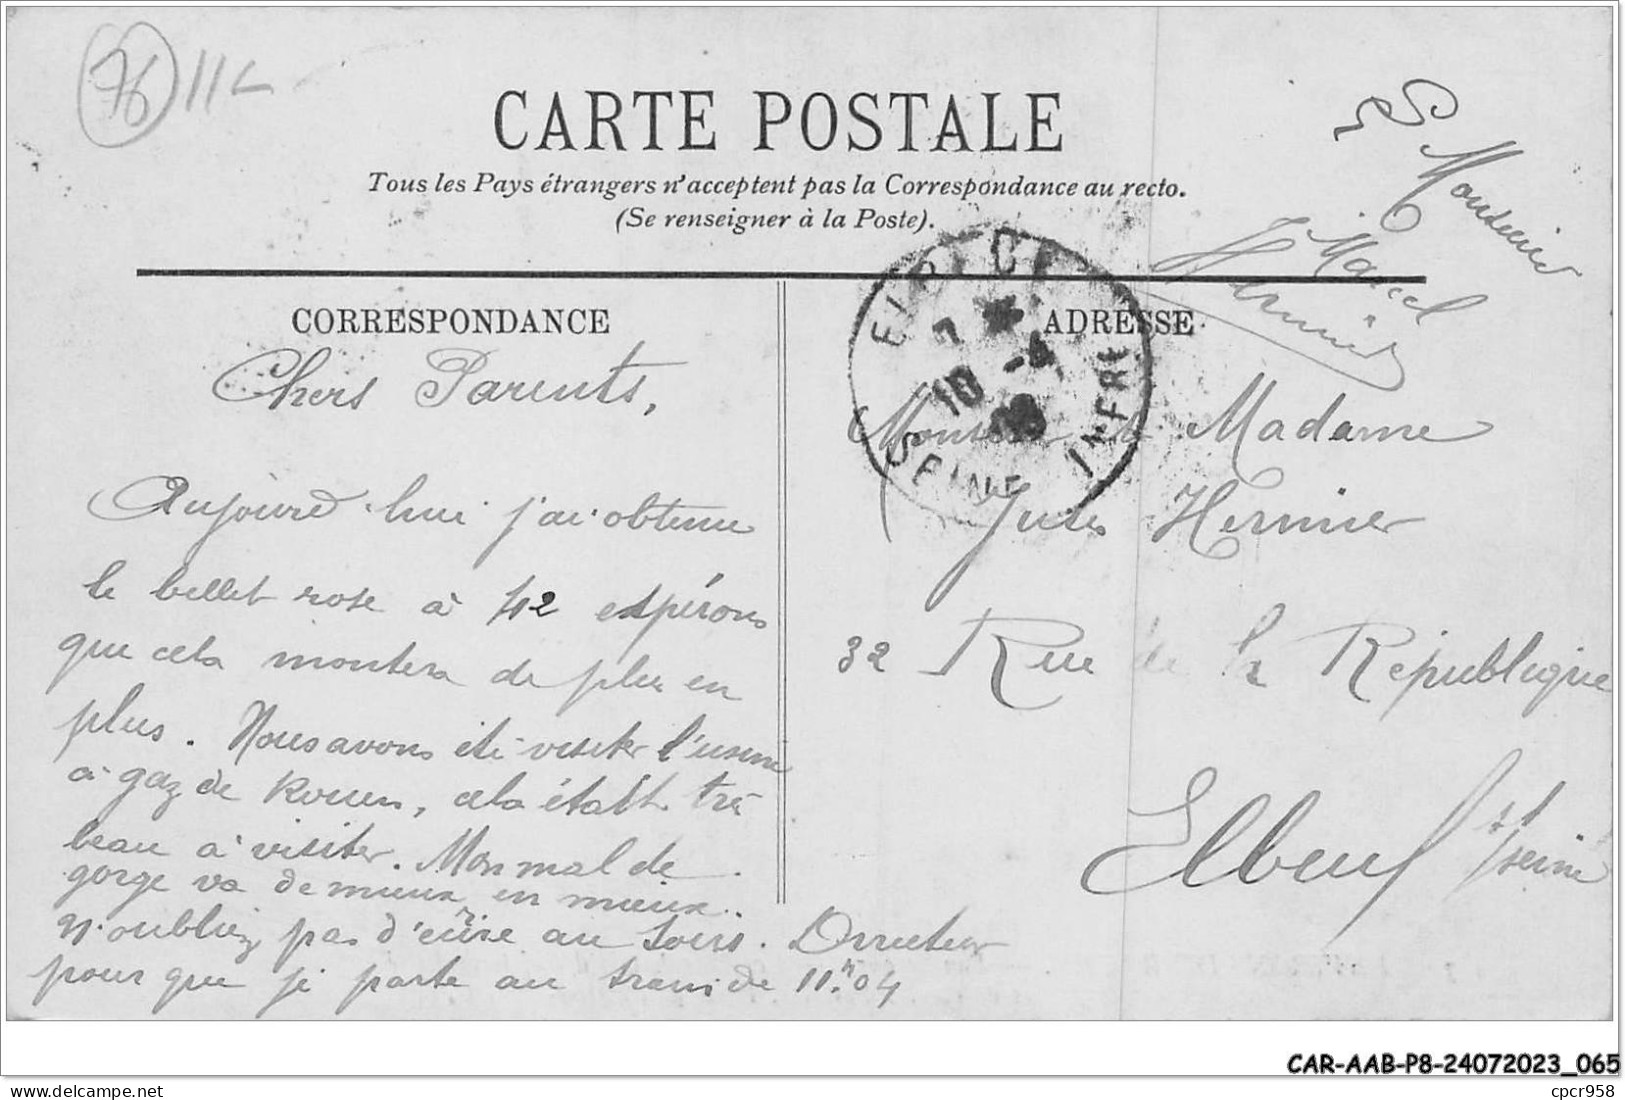 76 11
CARTE POSTALE
Tous les Pays étrangers n'acceptent pas la Correspondance au recto.
(Se renseigner à la Poste).
CORRESPONDANCE
Chers Parents,
Aujourd'hui j'ai obtenu
le billet rose à 42 espérons
que cela montera de plus en
plus. Nous avons été visiter l'usine
à gaz de Rouen, cela était très
beau à visiter. Mon mal de
gorge va de mieux en mieux.
N'oubliez pas d'écrire au Sous. Directeur
pour que je parte au train de 11h04
Marcel
Hernier
ADRESSE
ELBEUF
7
10 -4
09
SEINE INFRE
Monsieur et Madame
Jules Hernier
32 Rue de la République
Elbeuf s/seine
CAR-AAB-P8-24072023_065
delcampe.net
cpcr958